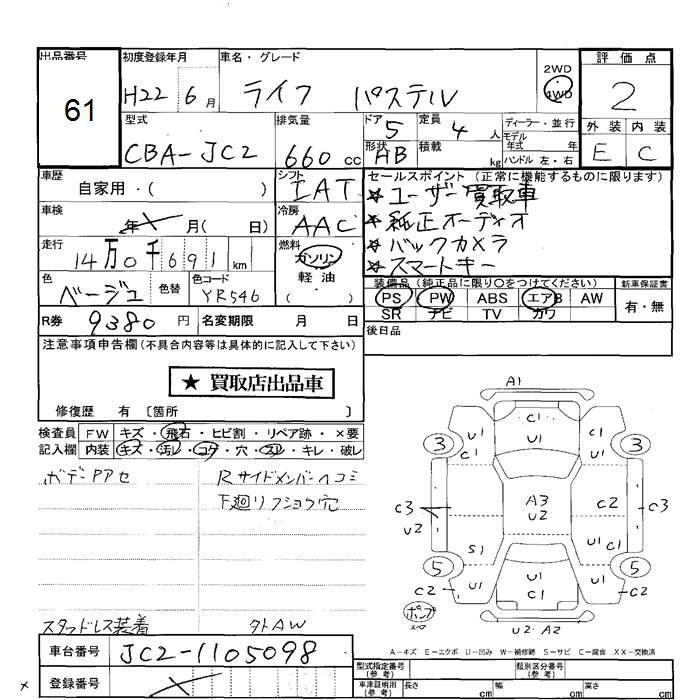 出品番号
61
初度登録年月
H22 6月
車名・グレード
ライフ パステル
2WD
4WD
評価点
2
型式
CBA-JC2
排気量
660cc
ドア
5
定員
4人
ディーラー・並行
モデル年式 年
形状
HB
積載
kg
ハンドル 左・右
外装 内装
E C
車歴
自家用・( )
シフト
IAT
セールスポイント (正常に機能するものに限ります)
★ユーザー買取車
★純正オーディオ
★バックカメラ
★スマートキー
車検
年 月( 日)
冷房
AAC
走行
14万0千691km
燃料
ガソリン
軽油
( )
色
ベージュ
色替
色コード
YR546
装備品 (純正品に限り○をつけてください)
新車保証書
PS PW ABS エアB AW
SR ナビ TV カワ
有・無
R券
9380円
名変期限 月 日
後日品
注意事項申告欄(不具合内容等は具体的に記入して下さい)
★ 買取店出品車
修復歴 有 〔箇所 〕
検査員
記入欄
FW キズ・飛石・ヒビ割・リペア跡・×要
内装 キズ・汚レ・コゲ・穴・スレ・キレ・破レ
ボデーPアセ
Rサイドメンバーヘコミ
下廻リフショウ穴
スタッドレス装着
外AW
A1
C1
U1
U1
C1
U1
C1
3
3
C3
U2
A3
U2
C2
C3
S1
U1
C1
5
5
C2
U1
U1
C1
U1
C2
ポンプ
スペア
U2 A2
A-キズ E-エクボ U-凹み W-補修跡 S-サビ C-腐食 XX-交換済
車台番号
JC2-1105098
登録番号
型式指定番号
(参考)
類別区分番号
(参考)
車庫証明用
(参考)
長さ cm
幅 cm
高さ cm